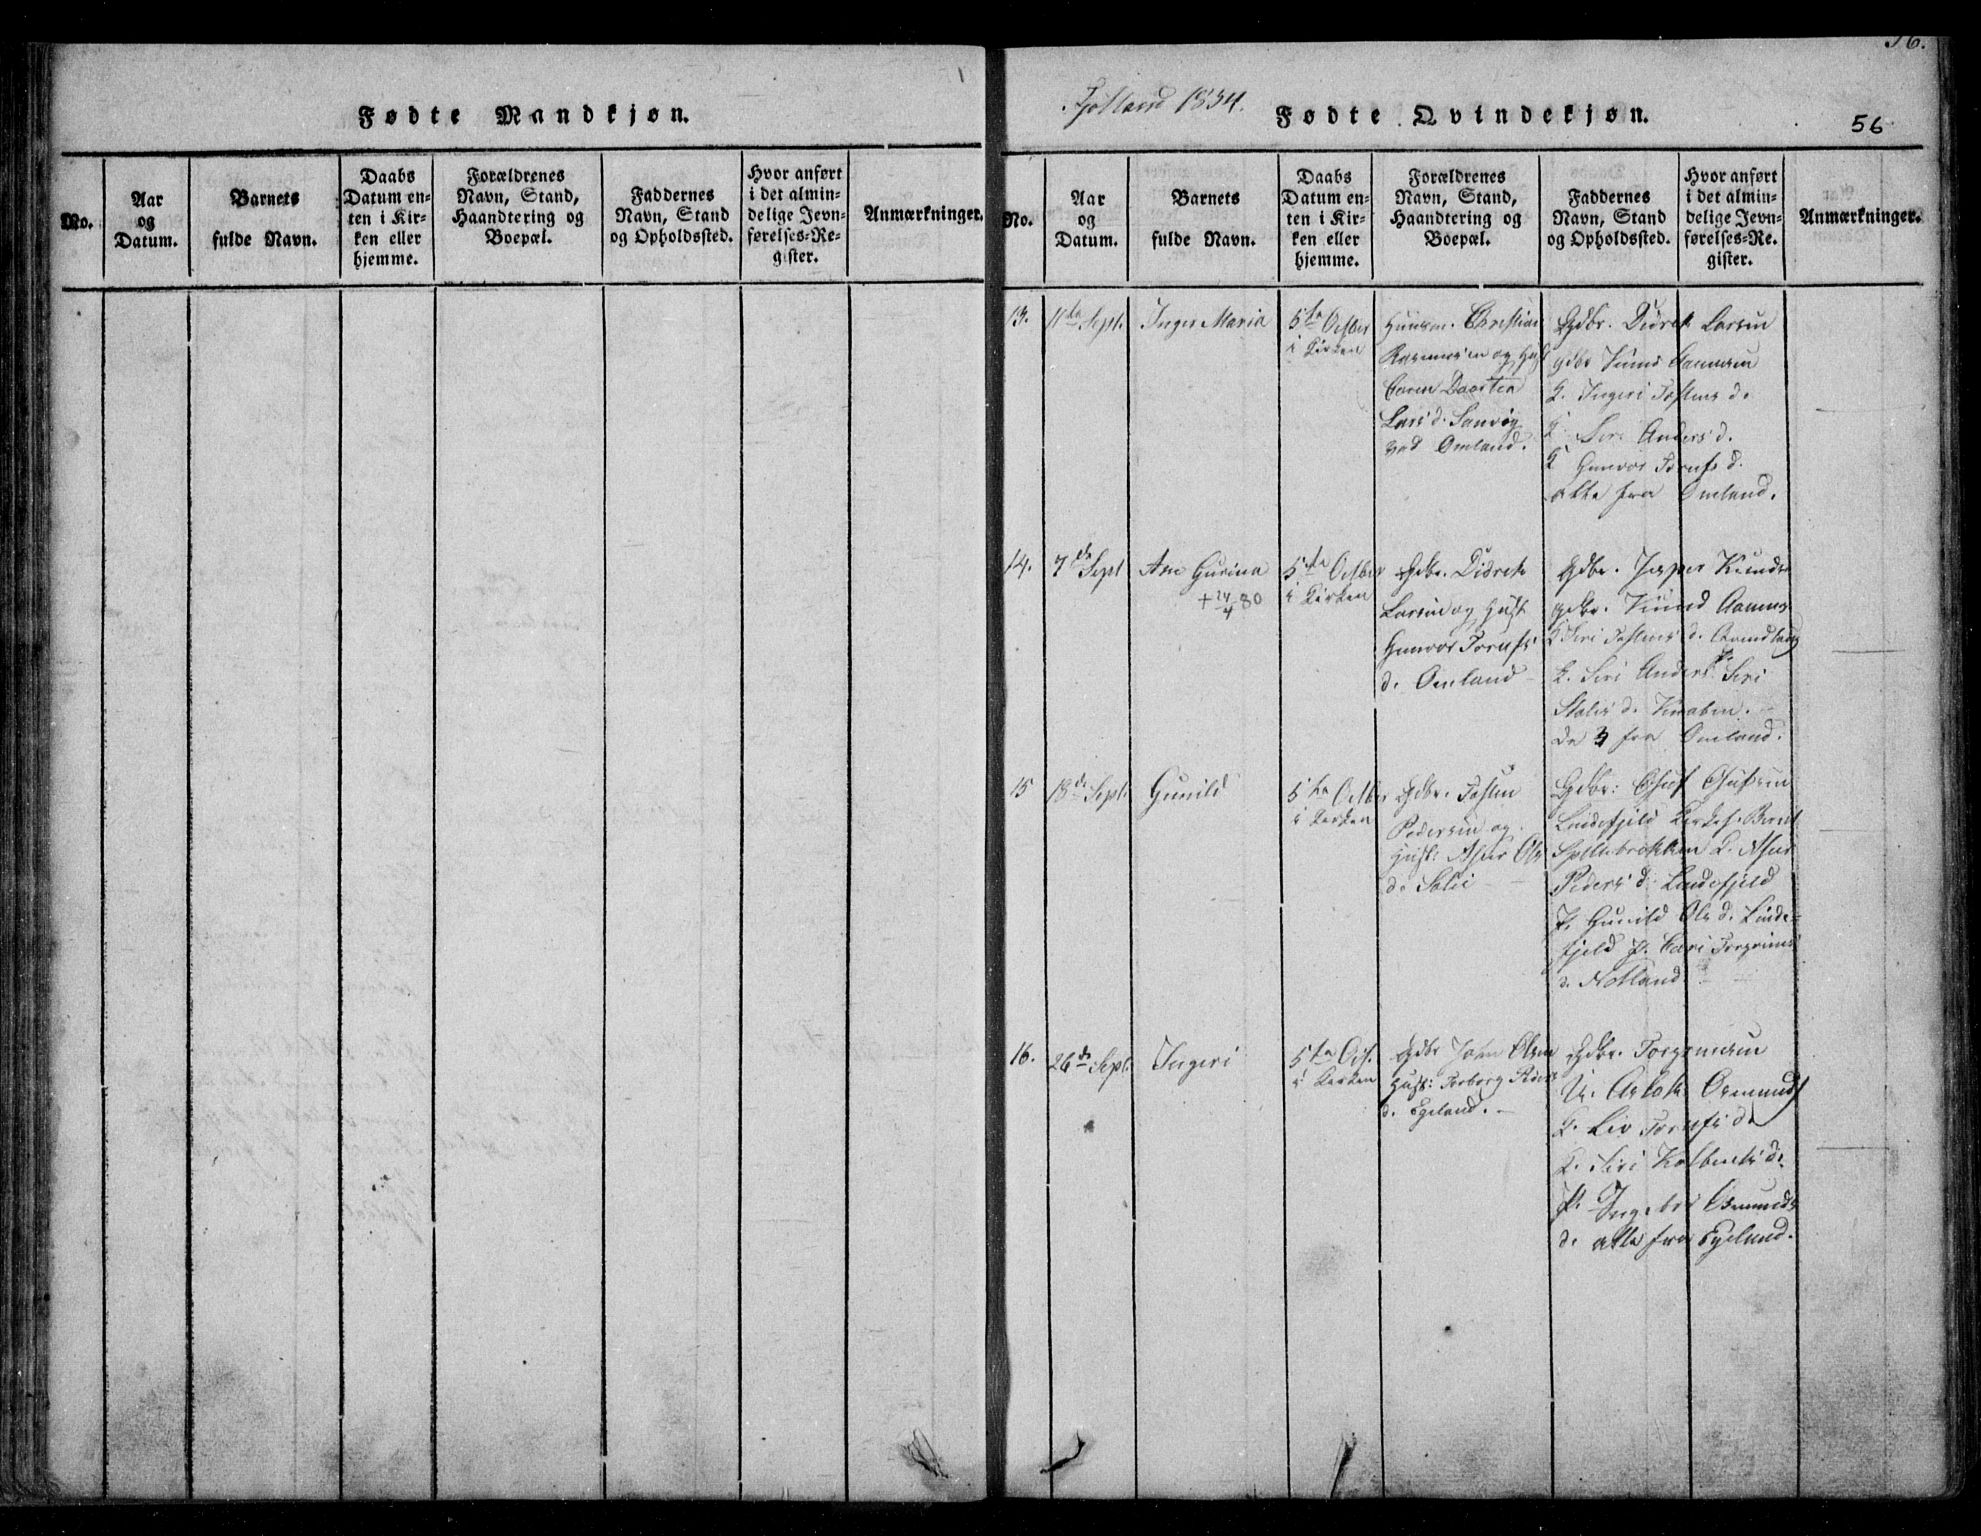 Fødte Mandkjøn.
No.
Aar
og
Datum.
Barnets
fulde Navn.
Daabs
Datum en-
ten i Kir-
ken eller
hjemme.
Forældrenes
Navn, Stand,
Haandtering og
Boepæl.
Faddernes
Navn, Stand
og Opholdssted.
Hvor anført
i det almin-
delige Jevn-
førelses-Re-
gister.
Anmærkninger.
56.
Fjotland 1834.
Fødte Qvindekjøn.
56
No.
Aar
og
Datum.
Barnets
fulde Navn.
Daabs
Datum en-
ten i Kir-
ken eller
hjemme.
Forældrenes
Navn, Stand,
Haandtering og
Boepæl.
Faddernes
Navn, Stand
og Opholdssted.
Hvor anført
i det almin-
delige Jevn-
førelses-Re-
gister.
Anmærkninger.
13.
11te Sept.
Inger Maria
5te Octber
i Kirken
Huusm. Christian
Rasmusen og Hust
Caren Dorthea
Lars d.
ved Omland.
Gdbr. Didrek Larsen
gdbr Knud Aanensen
K. Ingeri Tostens d.
K. Siri Anders d.
K Gunvor Torufs d.
alle fra Omland.
14.
7de Sept
Ane Gurina
+ 24/4 80
5te Octber
i Kirken
Gdbr. Didrek
Larsen og Hust
Gunvor Torufs
d. Omland
Gdbr. Jesper Knuds
gdbr. Knud Aanens
K Siri Tostens d.
K. Siri Anders d. Siri
Stoles d. Knaben.
de 3 fra Omland.
15
18de Sept.
Gunild
5te Octber
i Kirken
Gdbr. Tosten
Pedersen og
Hust: Asser Ols
d. Solie
Gdbr:
Lindefjeld Kirkes. Berent
K. Aser
Peders d. Lindefjeld
P. Gunild Ols d. Linde-
fjeld P. Cari Torgrims
d. Netland
16.
26de Sept.
Ingeri
5te Oct.
i Kirken
Gdbr John Olsen
Hust: Torborg
d. Egeland.
Gdbr. Torgrim
U. Aslak Osmunds
K. Liv Torufs d.
K. Siri Kolbents d.
P. Ingebor Osmunds
d. alle fra Egeland.